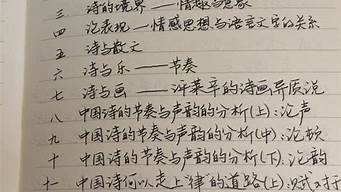 三 诗的境界——情趣与意象
四 论表现——情感思想与语言文字的关系
五 诗与散文
六 诗与乐——节奏
七 诗与画——评莱辛的诗画异质说
八 中国诗的节奏与声韵的分析(上):论声
九 中国诗的节奏与声韵的分析(中):论顿
十 中国诗的节奏与声韵的分析(下):论韵
十一 中国诗何以走上"律"的道路(上):赋对于